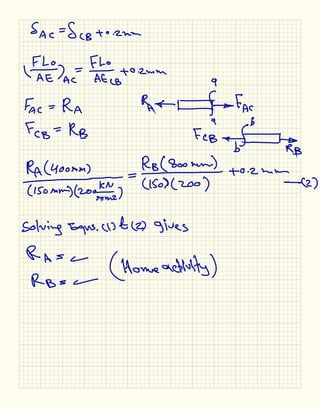 δAC = δCB + 0.2mm
(FLo/AE)AC = FLo/AE CB + 0.2mm
FAC = RA
FCB = RB
RA ← a a → FAC
FCB ← b b → RB
RA(400mm)/(150mm)(200 kN/mm2) = RB(800mm)/(150)(200) + 0.2mm —(2)
Solving Equs. (1) & (2) gives
RA = ✓
RB = ✓
(Home activity)